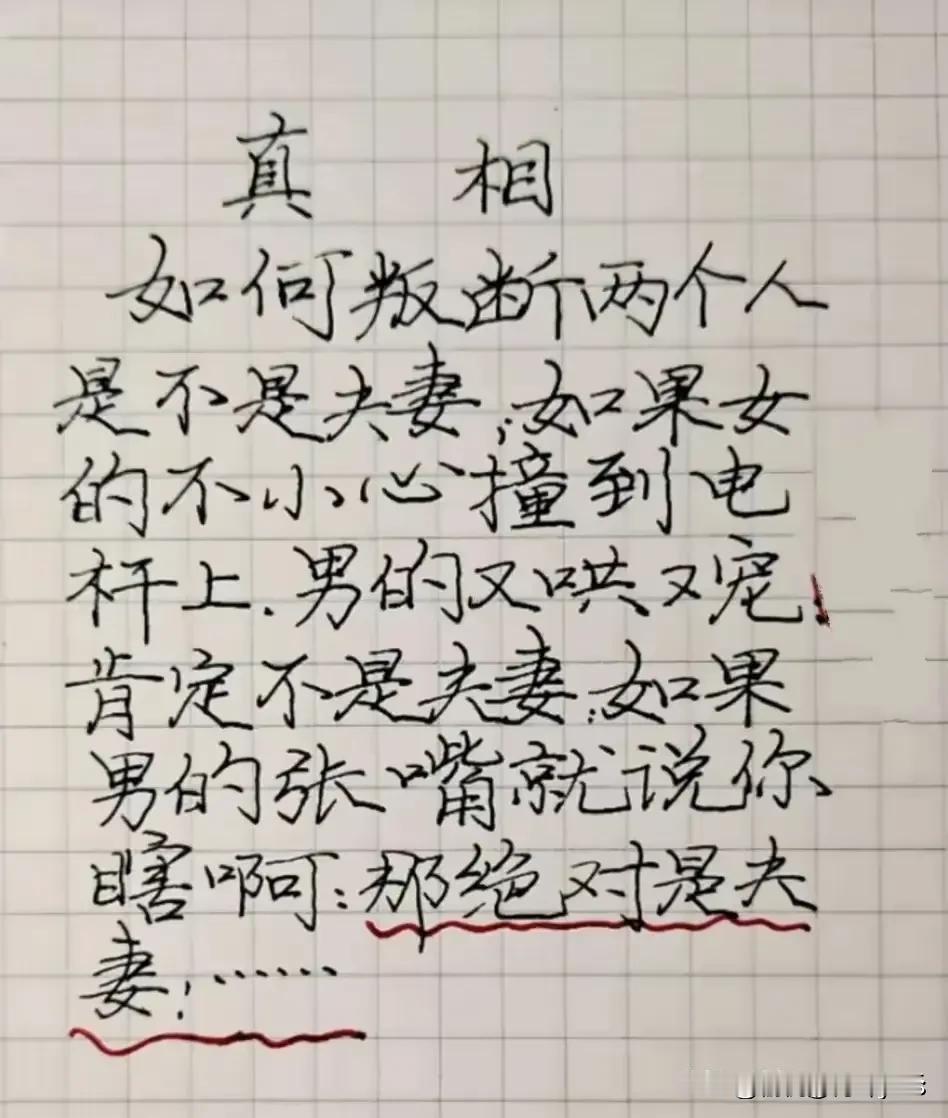 真 相
如何叛断两个人
是不是夫妻;如果女
的不小心撞到电
杆上.男的又哄又宠!
肯定不是夫妻.如果
男的张嘴就说你
瞎啊:那绝对是夫
妻!······